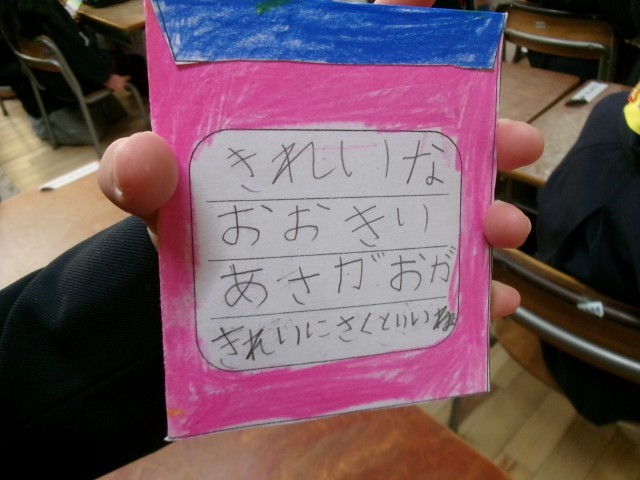 きれいな
おおきい
あさがおが
きれいにさくといいね